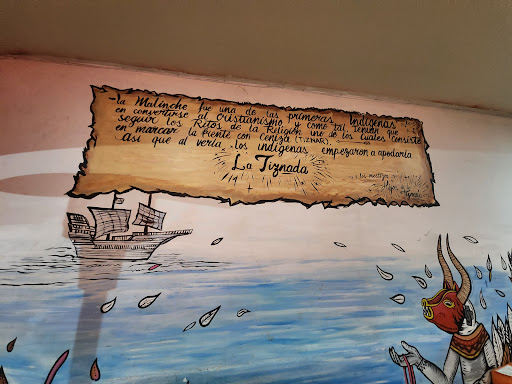 -La Malinche fue una de las primeras indígenas
en convertirse al cristianismo y como tal tenían que
seguir los Ritos de la Religión uno de los cuales consiste
en marcar la frente con ceniza (TIZNAR).
así que al verla .los indígenas empezaron a apodarla
La Tiznada